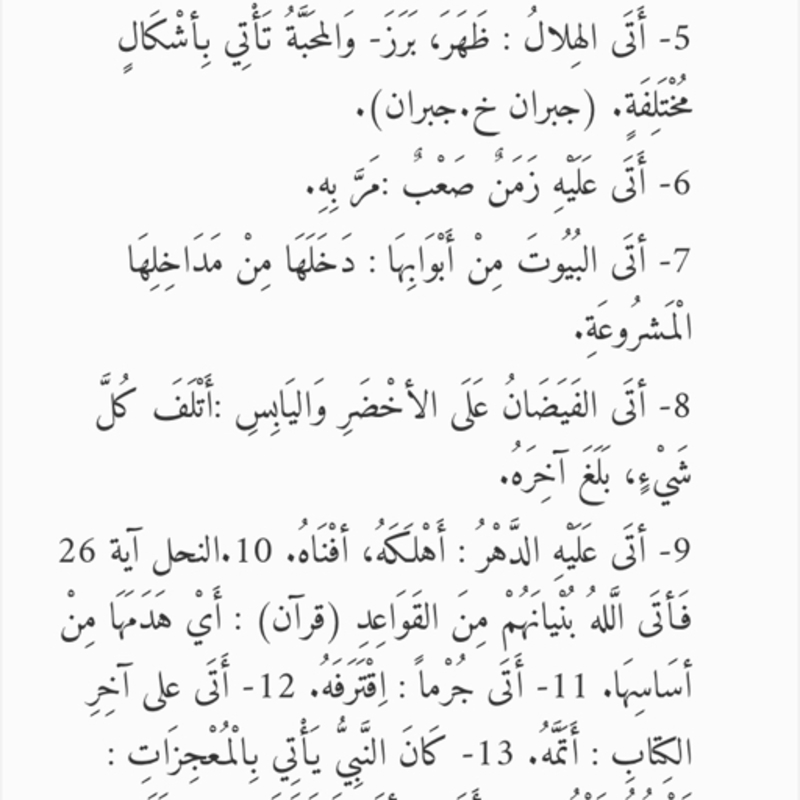 5- أَتَى الهِلالُ : ظَهَرَ، بَرَزَ- وَالمَحَبَّةُ تَأْتِي بِأشْكَالٍ
مُخْتَلِفَةٍ. (جبران خ.جبران).
6- أَتَى عَلَيْهِ زَمَنٌ صَعْبٌ :مَرَّ بِهِ.
7- أتَى البُيُوتَ مِنْ أَبْوَابِهَا : دَخَلَهَا مِنْ مَدَاخِلِهَا
الْمَشرُوعَةِ.
8- أتَى الفَيَضَانُ عَلَى الأخْضَرِ وَاليَابِسِ :أَتْلَفَ كُلَّ
شَيْءٍ، بَلَغَ آخِرَهُ.
9- أتَى عَلَيْهِ الدَّهْرُ : أَهْلَكَهُ، أفْنَاهُ. 10.النحل آية 26
فَأتَى الَّلهُ بُنْيانَهُمْ مِنَ القَوَاعِدِ (قرآن) : أَيْ هَدَمَهَا مِنْ
أسَاسِهَا. 11- أَتَى جُرْماً : اِقْتَرَفَهُ. 12- أَتَى على آخِرِ
الكِتابِ : أَتَمَّهُ. 13- كَانَ النَّبِيُّ يَأْتِي بِالْمُعْجِزَاتِ :